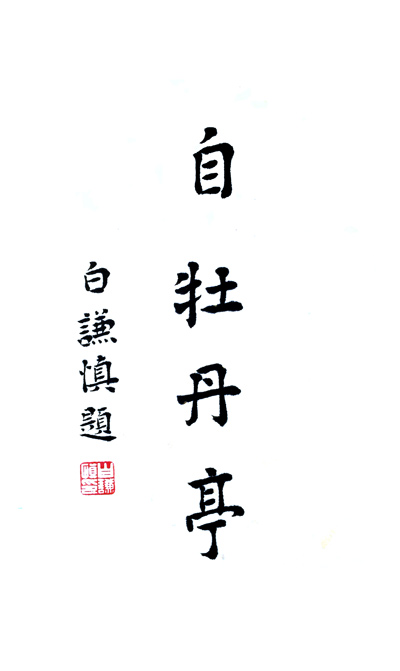 自牡丹亭
白謙慎題
白謙慎印